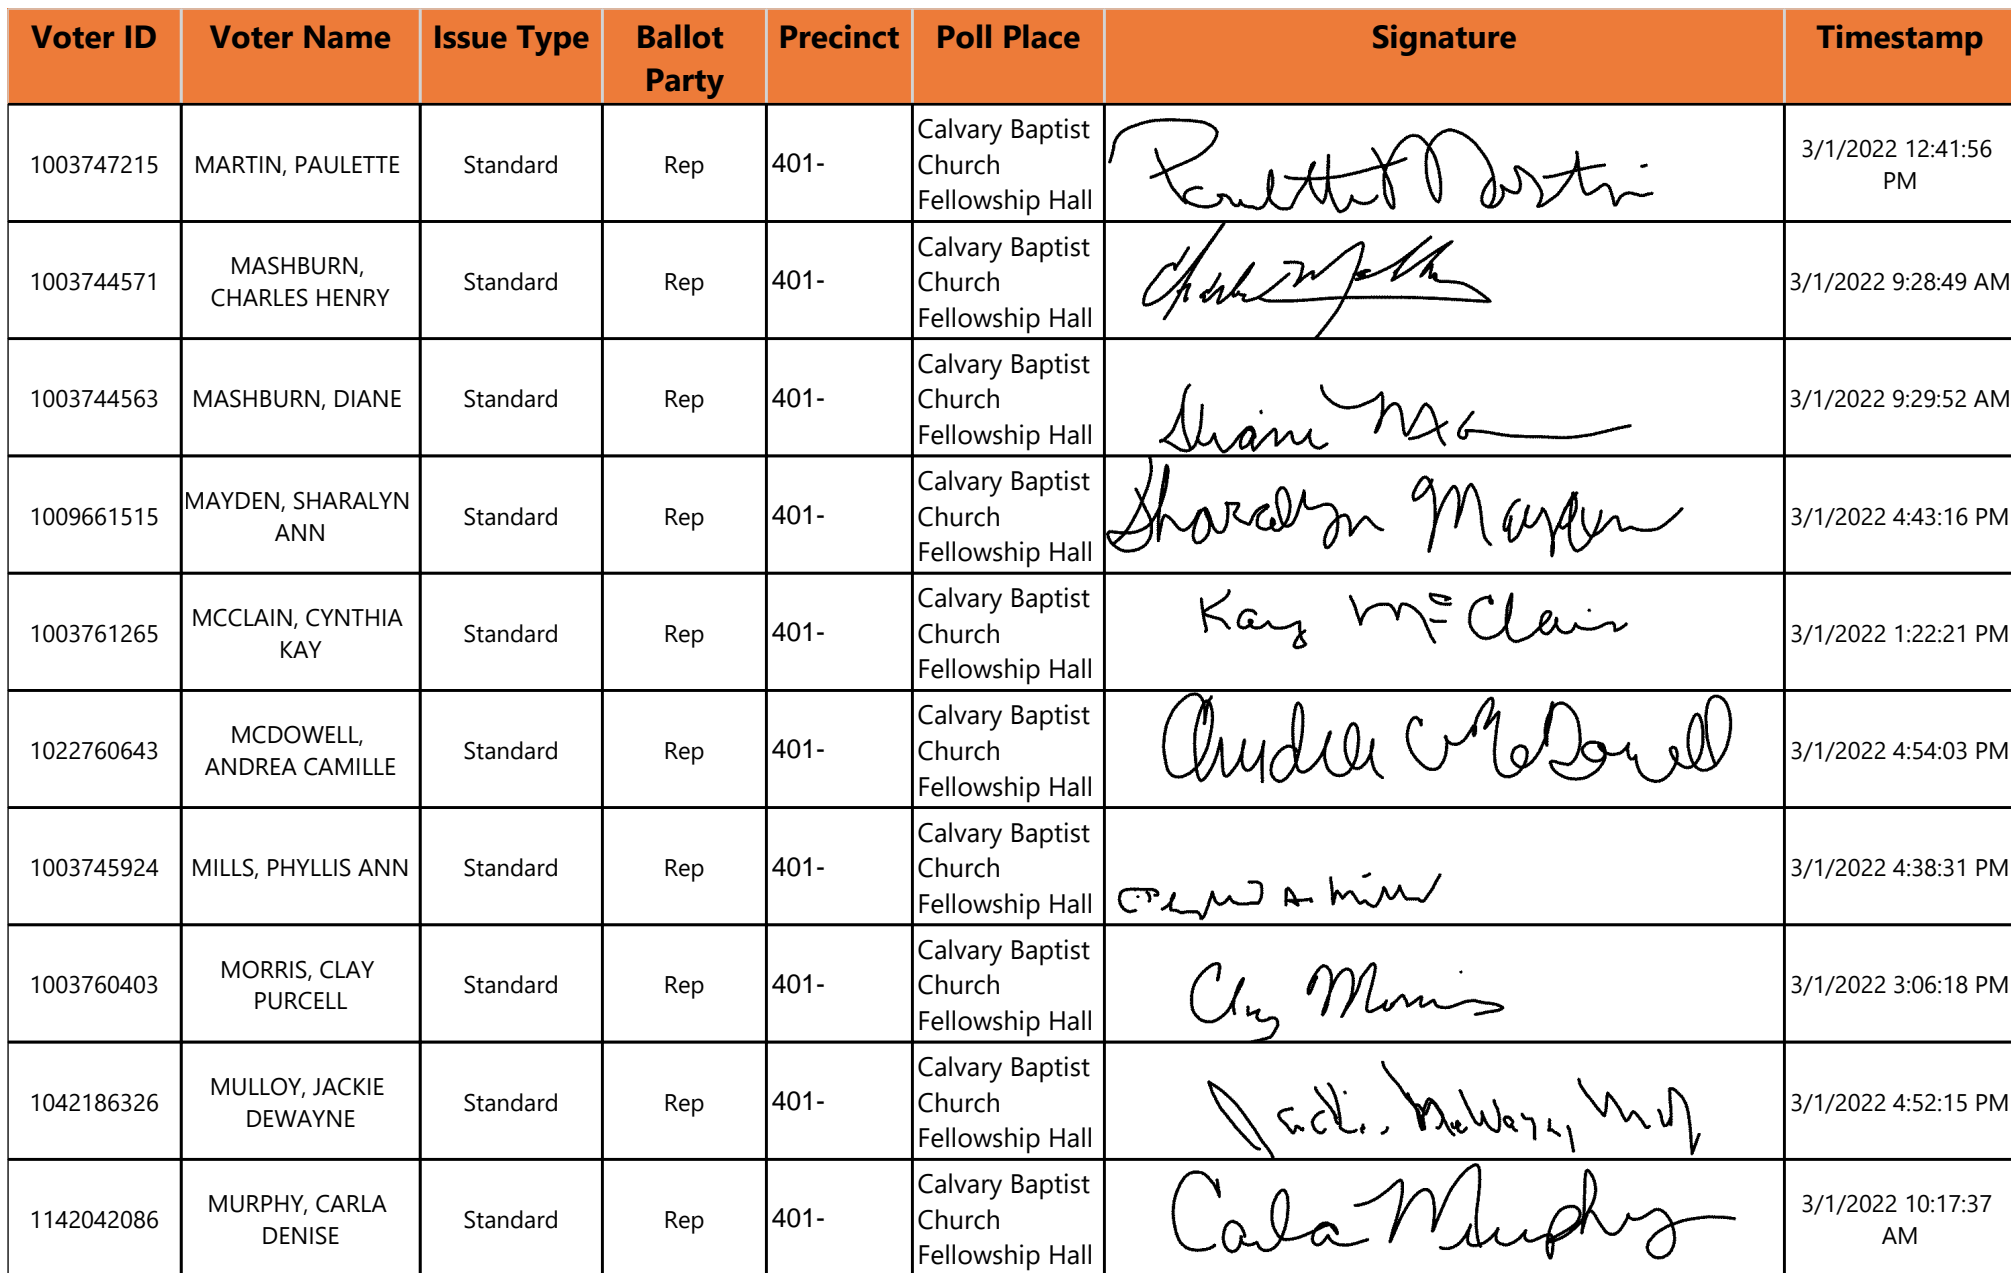 Voter ID Voter Name Issue Type Ballot Party Precinct Poll Place Signature Timestamp
1003747215 MARTIN, PAULETTE Standard Rep 401- Calvary Baptist Church Fellowship Hall Paulette Martin 3/1/2022 12:41:56 PM
1003744571 MASHBURN, CHARLES HENRY Standard Rep 401- Calvary Baptist Church Fellowship Hall Charles 3/1/2022 9:28:49 AM
1003744563 MASHBURN, DIANE Standard Rep 401- Calvary Baptist Church Fellowship Hall Diane 3/1/2022 9:29:52 AM
1009661515 MAYDEN, SHARALYN ANN Standard Rep 401- Calvary Baptist Church Fellowship Hall Sharalyn Mayden 3/1/2022 4:43:16 PM
1003761265 MCCLAIN, CYNTHIA KAY Standard Rep 401- Calvary Baptist Church Fellowship Hall Kay McClain 3/1/2022 1:22:21 PM
1022760643 MCDOWELL, ANDREA CAMILLE Standard Rep 401- Calvary Baptist Church Fellowship Hall Andrea C McDowell 3/1/2022 4:54:03 PM
1003745924 MILLS, PHYLLIS ANN Standard Rep 401- Calvary Baptist Church Fellowship Hall A. Mills 3/1/2022 4:38:31 PM
1003760403 MORRIS, CLAY PURCELL Standard Rep 401- Calvary Baptist Church Fellowship Hall Clay Morris 3/1/2022 3:06:18 PM
1042186326 MULLOY, JACKIE DEWAYNE Standard Rep 401- Calvary Baptist Church Fellowship Hall Jackie DeWayne 3/1/2022 4:52:15 PM
1142042086 MURPHY, CARLA DENISE Standard Rep 401- Calvary Baptist Church Fellowship Hall Carla Murphy 3/1/2022 10:17:37 AM